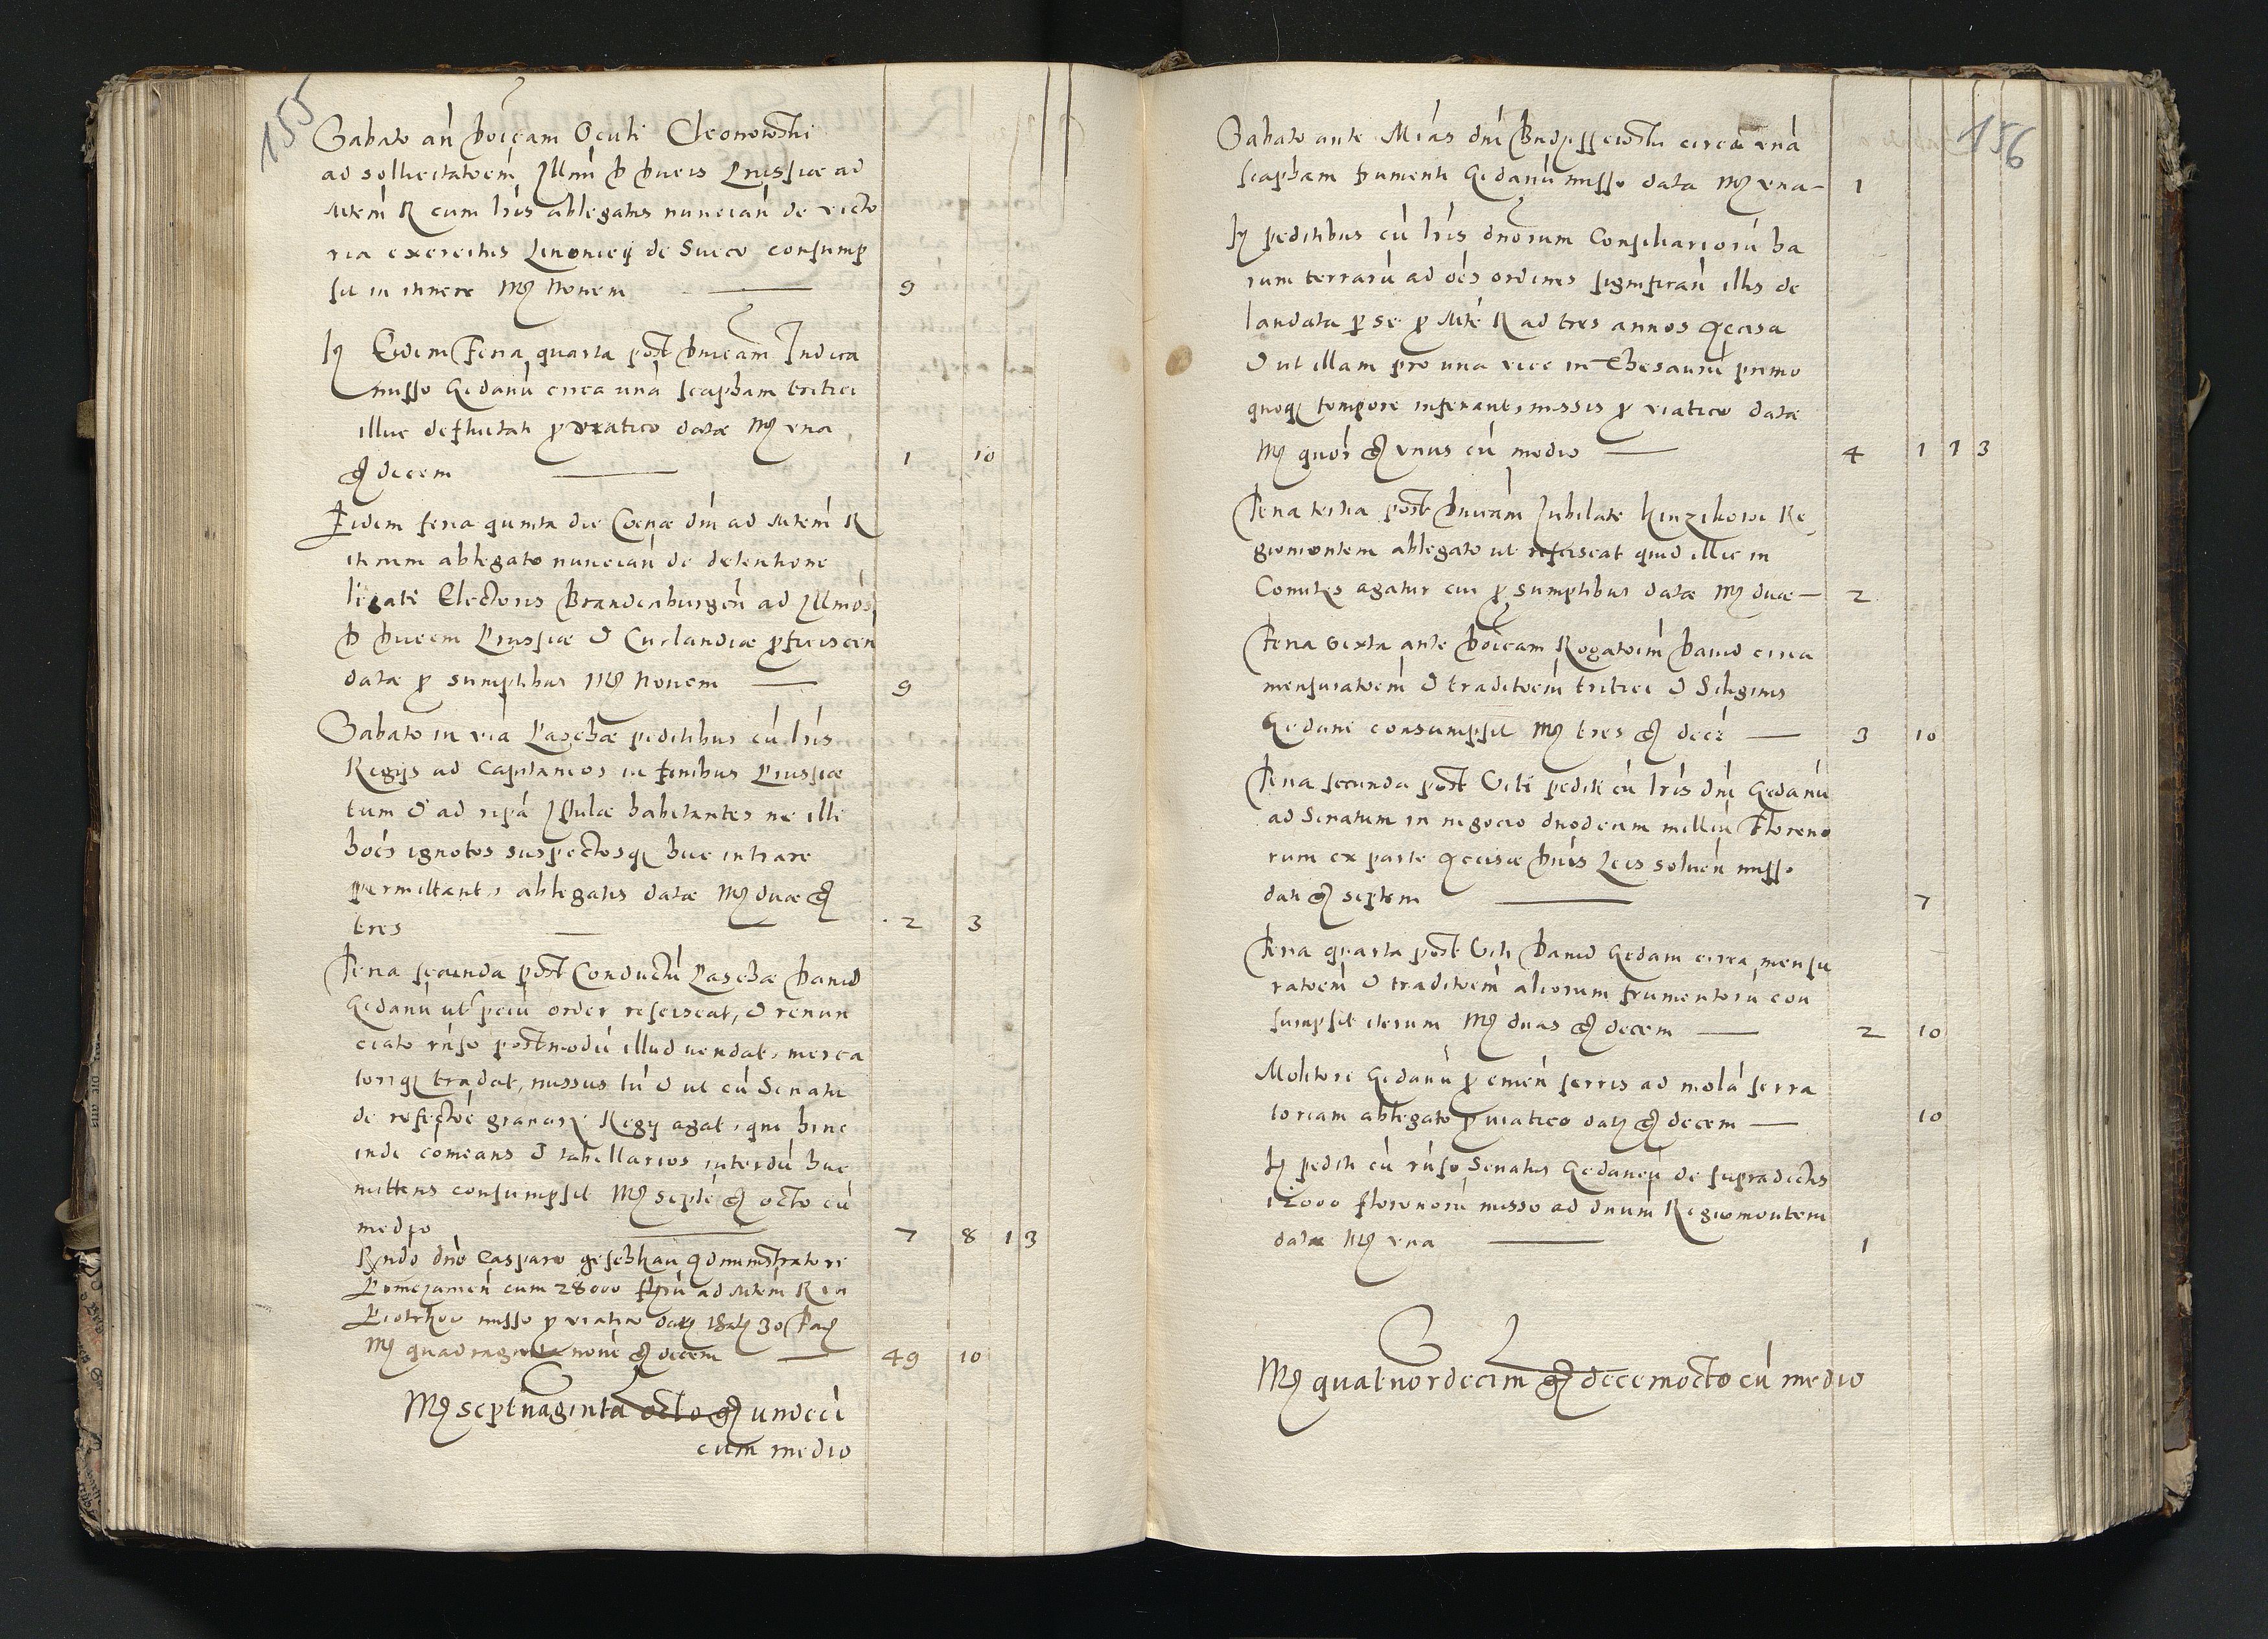 155
Sabato an̄ Dōicam Oculi Cleonowski
ad sollicitatōem Illmi D Ducis Prussiae ad
Mtem R cum lris ablegatus nuncian̄ de victo
ria exercitus Livonicij de Sueco consump
sit in itinere Mꝫ Novem — 9
Iꝫ Eidem Feria quarta post Dnicam Iudica
misso Gedanū circa unā scapham tritici
illuc defluitan̄ ꝓ viatico datae Mꝫ vna
gꝫ decem — 1 10
Eidem feria quinta die Coenae dni ad Mtem R
iterum ablegato nuncian̄ de detentione
legati Electoris Brandenburgen̄ ad Illmos
D Ducem Prussiae & Curlandiae ꝓficiscen̄
datae ꝓ sumptibus Mꝫ Novem — 9
Sabato in via Paschae peditibus cū lris
Regijs ad Capitaneos in finibus Prussiae
tum & ad ripā Istulae habitantes ne illi
hoīes ignotos suspectosqꝫ huc intrare
permittant, ablegatis datae Mꝫ duae gꝫ
tres — 2 3
Feria secunda post Conductū Paschae David
Gedanū ut preciū ordei resciscat, & renun
ciato rūso postmodū illud vendat, merca
toriqꝫ tradat, missus tū & ut cū Senatu
de refectōe granarij Regij agat, qui hinc
inde comeans & tabellarios interdū huc
mittens consumpsit Mꝫ septē gꝫ octo cū
medio — 7 8 1 3
Rndo dno Casparo Geschkau Administratore
Pomezanien̄ cum 28000 flꝫ ad Mtem R in
Piotrkow misso ꝓ viatico datꝫ 30
Mꝫ quadraginta novē gꝫ decem — 49 10
Mꝫ septuaginta octo gꝫ undecī
cum medio
156
Sabato ante Mīas dni circa vnā
scapham frumenti Gedanū misso data Mꝫ vna — 1
Iꝫ peditibus cū lris dnorum Consiliariorū ha
rum terrarū ad oēs ordines significan̄ illis de
laudata ꝑ se ꝓ Mte R ad tres annos Accisa
& ut illam pro una vice in Thesaurū primo
quoqꝫ tempore inferant, missis ꝓ viatico datae
Mꝫ quōr gꝫ vnus cū medio — 4 1 1 3
Feria tertia post Dnicam Iubilate Kinzikowi Re
giomontem ablegato ut resciscat quid illic in
Comitiis agatur cui ꝓ sumptibus datae Mꝫ duae — 2
Feria Sexta ante Dōicam Rogatoīm David circa
mensuratoēm & traditoēm tritici & Siliginis
Gedani consumpsit Mꝫ tres gꝫ decē — 3 10
Feria secunda post Viti pediti cū lris dni Gedanū
ad Senatum in negocio duodecim milliū Floreno
rum ex parte Accisae solven̄ misso
dati gꝫ septem — 7
Feria quarta post Viti David Gedani circa mensu
ratoēm & traditoēm aliorum frumentorū con
sumpsit iterum Mꝫ duas gꝫ decem — 2 10
Molitori Gedanū ꝓ emen̄ serris ad molā serra
toriam ablegato ꝓ viatico datꝫ gꝫ decem — 10
Iꝫ pediti cū rūso Senatus Gedanen̄ de supradictis
12000 florenorū misso ad dnum Regiomontem
data Mꝫ vna — 1
Mꝫ quatuordecim gꝫ decemocto cū medio